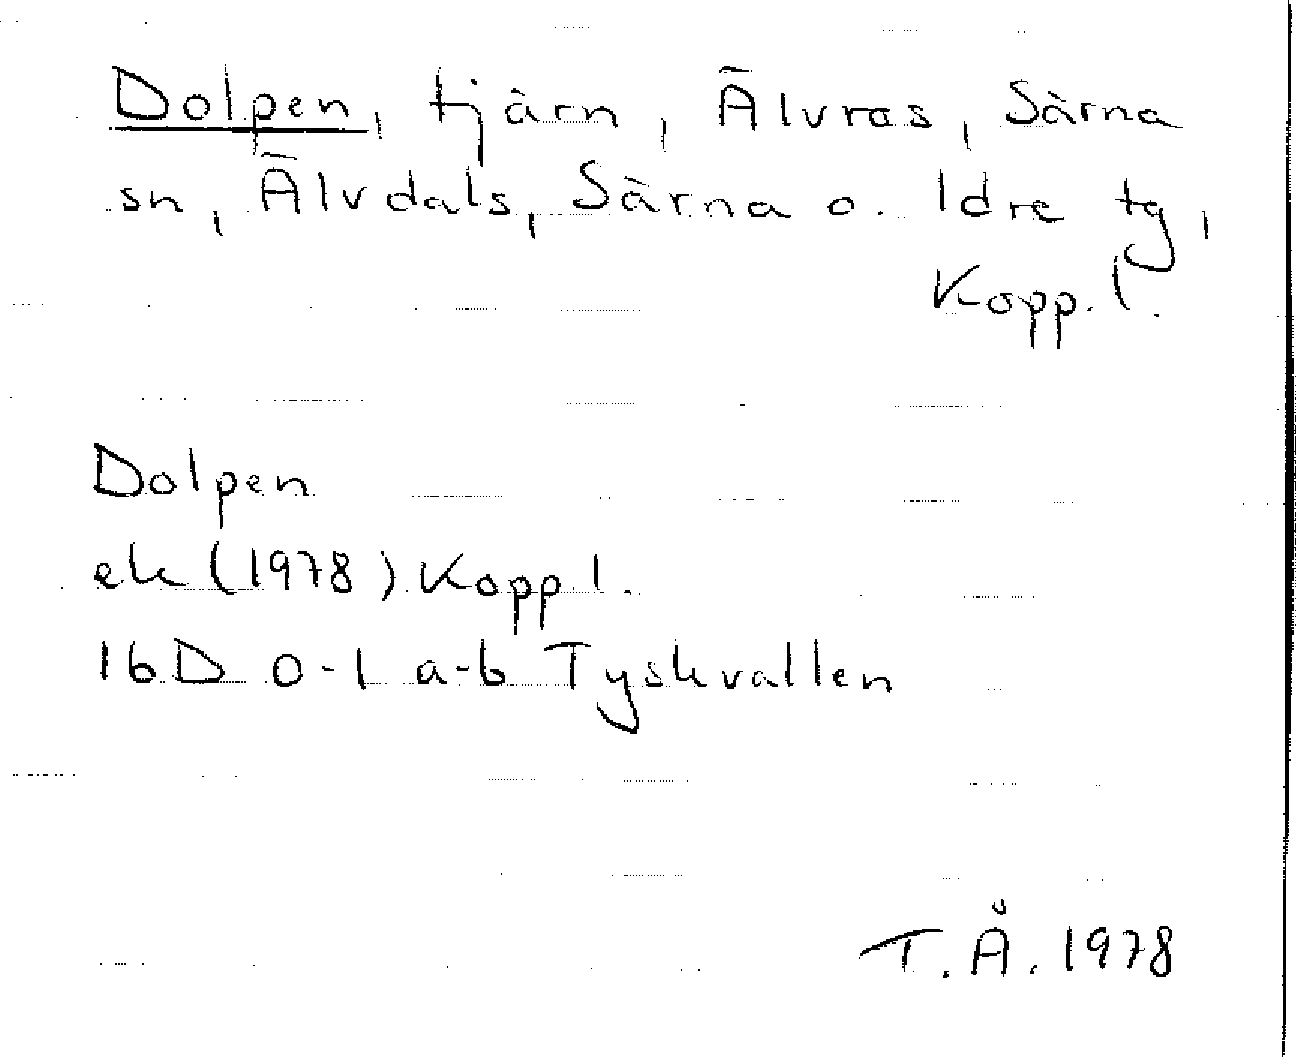 Dolpen, tjärn, Älvros, Särna
sn, Älvdals, Särna o. Idre tg,
Kopp. l.
Dolpen
ek (1978) Kopp l.
16D 0-1 a-b Tyskvallen
T.Å. 1978